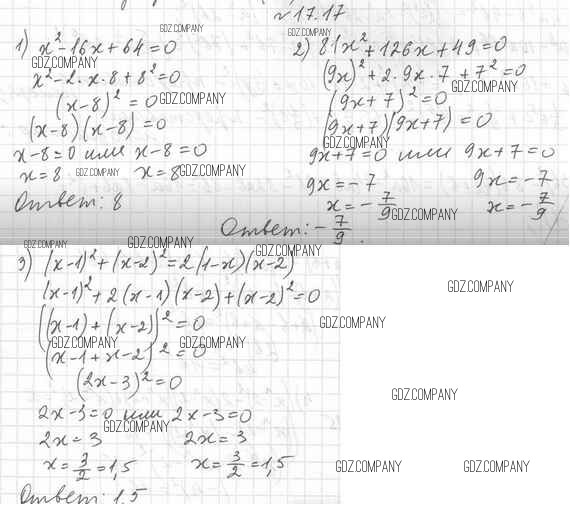 №17.17
GDZ.COMPANY
GDZ.COMPANY
1) x² - 16x + 64 = 0
GDZ.COMPANY
x² - 2·x·8 + 8² = 0
(x-8)² = 0
GDZ.COMPANY
(x-8)(x-8) = 0
x-8=0 или x-8=0
x=8
GDZ.COMPANY
x=8
GDZ.COMPANY
Ответ: 8
2) 81x² + 126x + 49 = 0
(9x)² + 2·9x·7 + 7² = 0
GDZ.COMPANY
(9x+7)² = 0
(9x+7)(9x+7) = 0
GDZ.COMPANY
9x+7=0 или 9x+7=0
9x = -7 9x = -7
x = -7/9 x = -7/9
GDZ.COMPANY
Ответ: -7/9.
GDZ.COMPANY
GDZ.COMPANY
GDZ.COMPANY
3) (x-1)² + (x-2)² = 2(1-x)(x-2)
GDZ.COMPANY
(x-1)² + 2(x-1)(x-2) + (x-2)² = 0
((x-1) + (x-2))² = 0
GDZ.COMPANY
GDZ.COMPANY
GDZ.COMPANY
(x-1+x-2)² = 0
(2x-3)² = 0
GDZ.COMPANY
2x-3=0 или 2x-3=0
GDZ.COMPANY
2x = 3 2x = 3
x = 3/2 = 1,5 x = 3/2 = 1,5
GDZ.COMPANY
GDZ.COMPANY
Ответ: 1,5